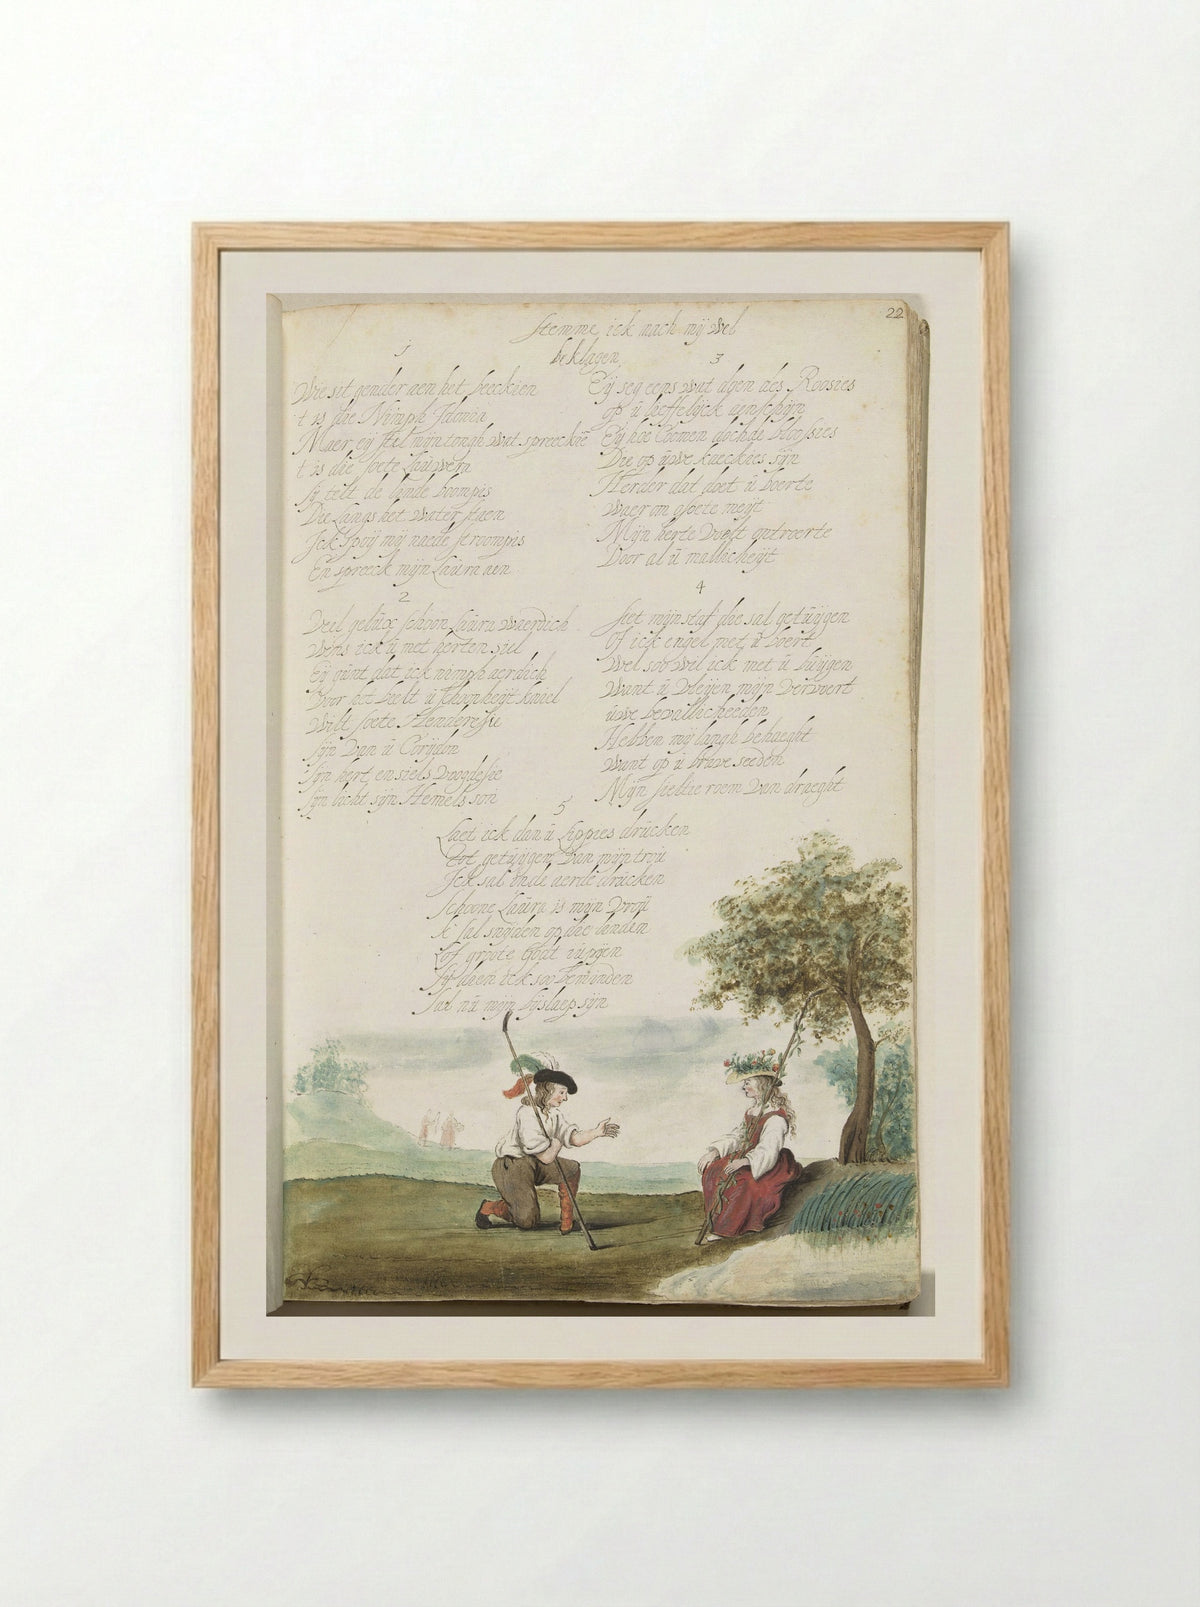 22
Stemme ick mach mij wel
beklagen
1
Wie sit gender aen het beeckien
t is die Nimph
Maer eij stel mijn tongh wat spreeckie
t is die soete Lauwera
Sij telt de linde boompis
Die langs het water staen
Ick spoij mij nae de stroompis
En spreeck mijn Laura aen
2
Veil gelück schoon Laura waerdich
Wens ick ü met herten
Eij günt dat ick nimph aerdich
Voor het belt ü schoonheijt kniel
Wilt soete
Sijn van ü Corijdon
Sijn hert en siels voogdesse
Sijn licht sijn Hemels son
3
Eij seg eens wat doen des Roosies
op ü lieffelijck aenschijn
Eij hoe comen doch de bloosies
Die op üwe kaeckies sijn
Herder dat doet ü boerte
Waerom soete meijt
Mijn herte wort ontroerte
Door al ü mallicheijt
4
Siet mijn staf die sal getüijgen
Of ick engel met ü boert
Wel soo wel ick met ü
Want ü vleijen mijn vervoert
üwe bevallicheeden
Hebben mij langh behaeght
Want op ü brave seeden
Mijn sieltie roem van draeght
5
Laet ick dan ü lippies drücken
Tot getüijgen van mijn trou
Ick sal aerde drücken
Schoone Laura is mijn vroü
Ick sal snijden op die linden
Lof groote Godt
Sij dien ick soo beminden
Sal nü mijn bijslaep sijn